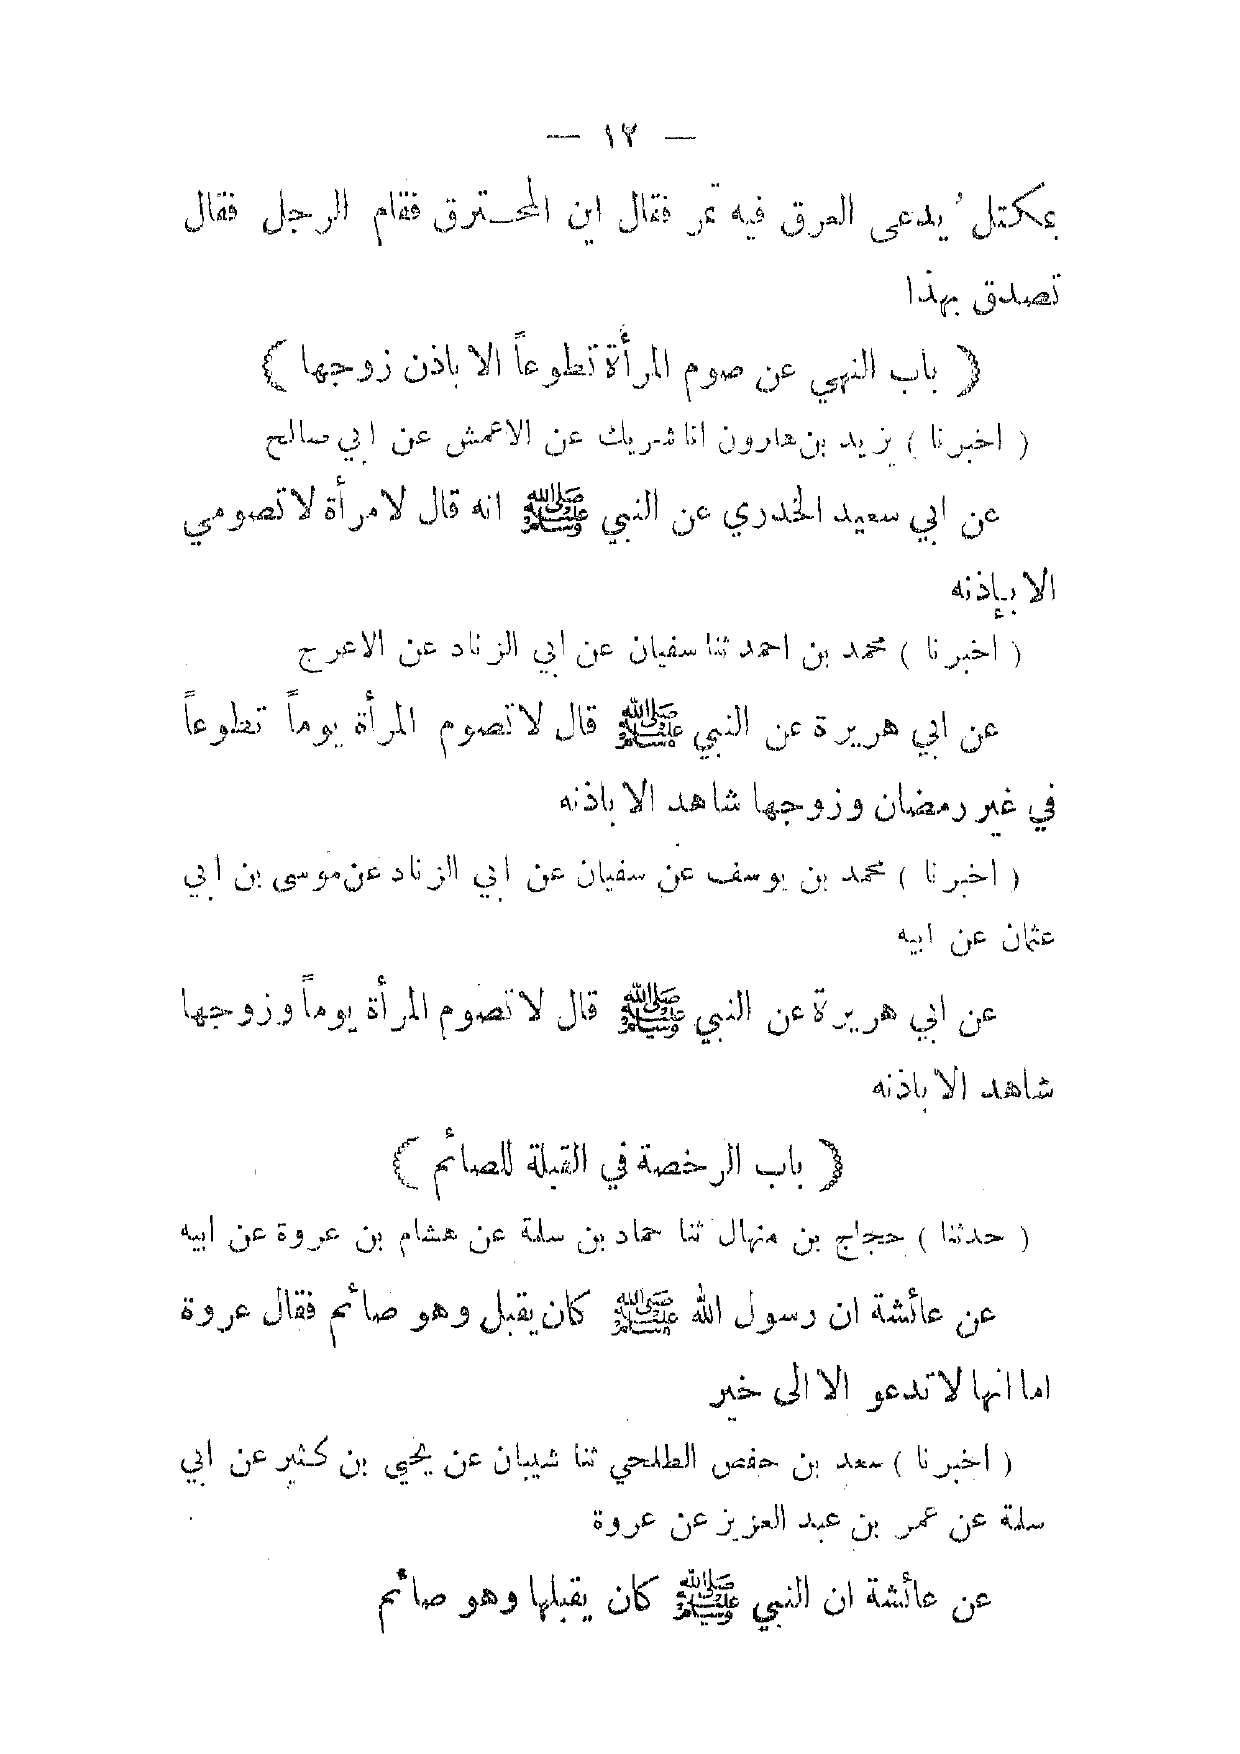 — ١٢ —
بمكتل يدعى العرق فيه تمر فقال اين المحترق فقام الرجل فقال
تصدق بهذا
( باب النهي عن صوم المرأة تطوعاً الا باذن زوجها )
( اخبرنا ) يزيد بن هارون انا شريك عن الاعمش عن ابي صالح
عن ابي سعيد الخدري عن النبي ﷺ انه قال لامرأة لا تصومي
الا بإذنه
( اخبرنا ) محمد بن احمد ثنا سفيان عن ابي الزناد عن الاعرج
عن ابي هريرة عن النبي ﷺ قال لا تصوم المرأة يوماً تطوعاً
في غير رمضان وزوجها شاهد الا باذنه
( اخبرنا ) محمد بن يوسف عن سفيان عن ابي الزناد عن موسى بن ابي
عثمان عن ابيه
عن ابي هريرة عن النبي ﷺ قال لا تصوم المرأة يوماً وزوجها
شاهد الا باذنه
( باب الرخصة في القبلة للصائم )
( حدثنا ) حجاج بن منهال ثنا حماد بن سلمة عن هشام بن عروة عن ابيه
عن عائشة ان رسول الله ﷺ كان يقبل وهو صائم فقال عروة
اما انها لا تدعو الا الى خير
( اخبرنا ) سعد بن حفص الطلحي ثنا شيبان عن يحيى بن كثير عن ابي
سلمة عن عمر بن عبد العزيز عن عروة
عن عائشة ان النبي ﷺ كان يقبلها وهو صائم